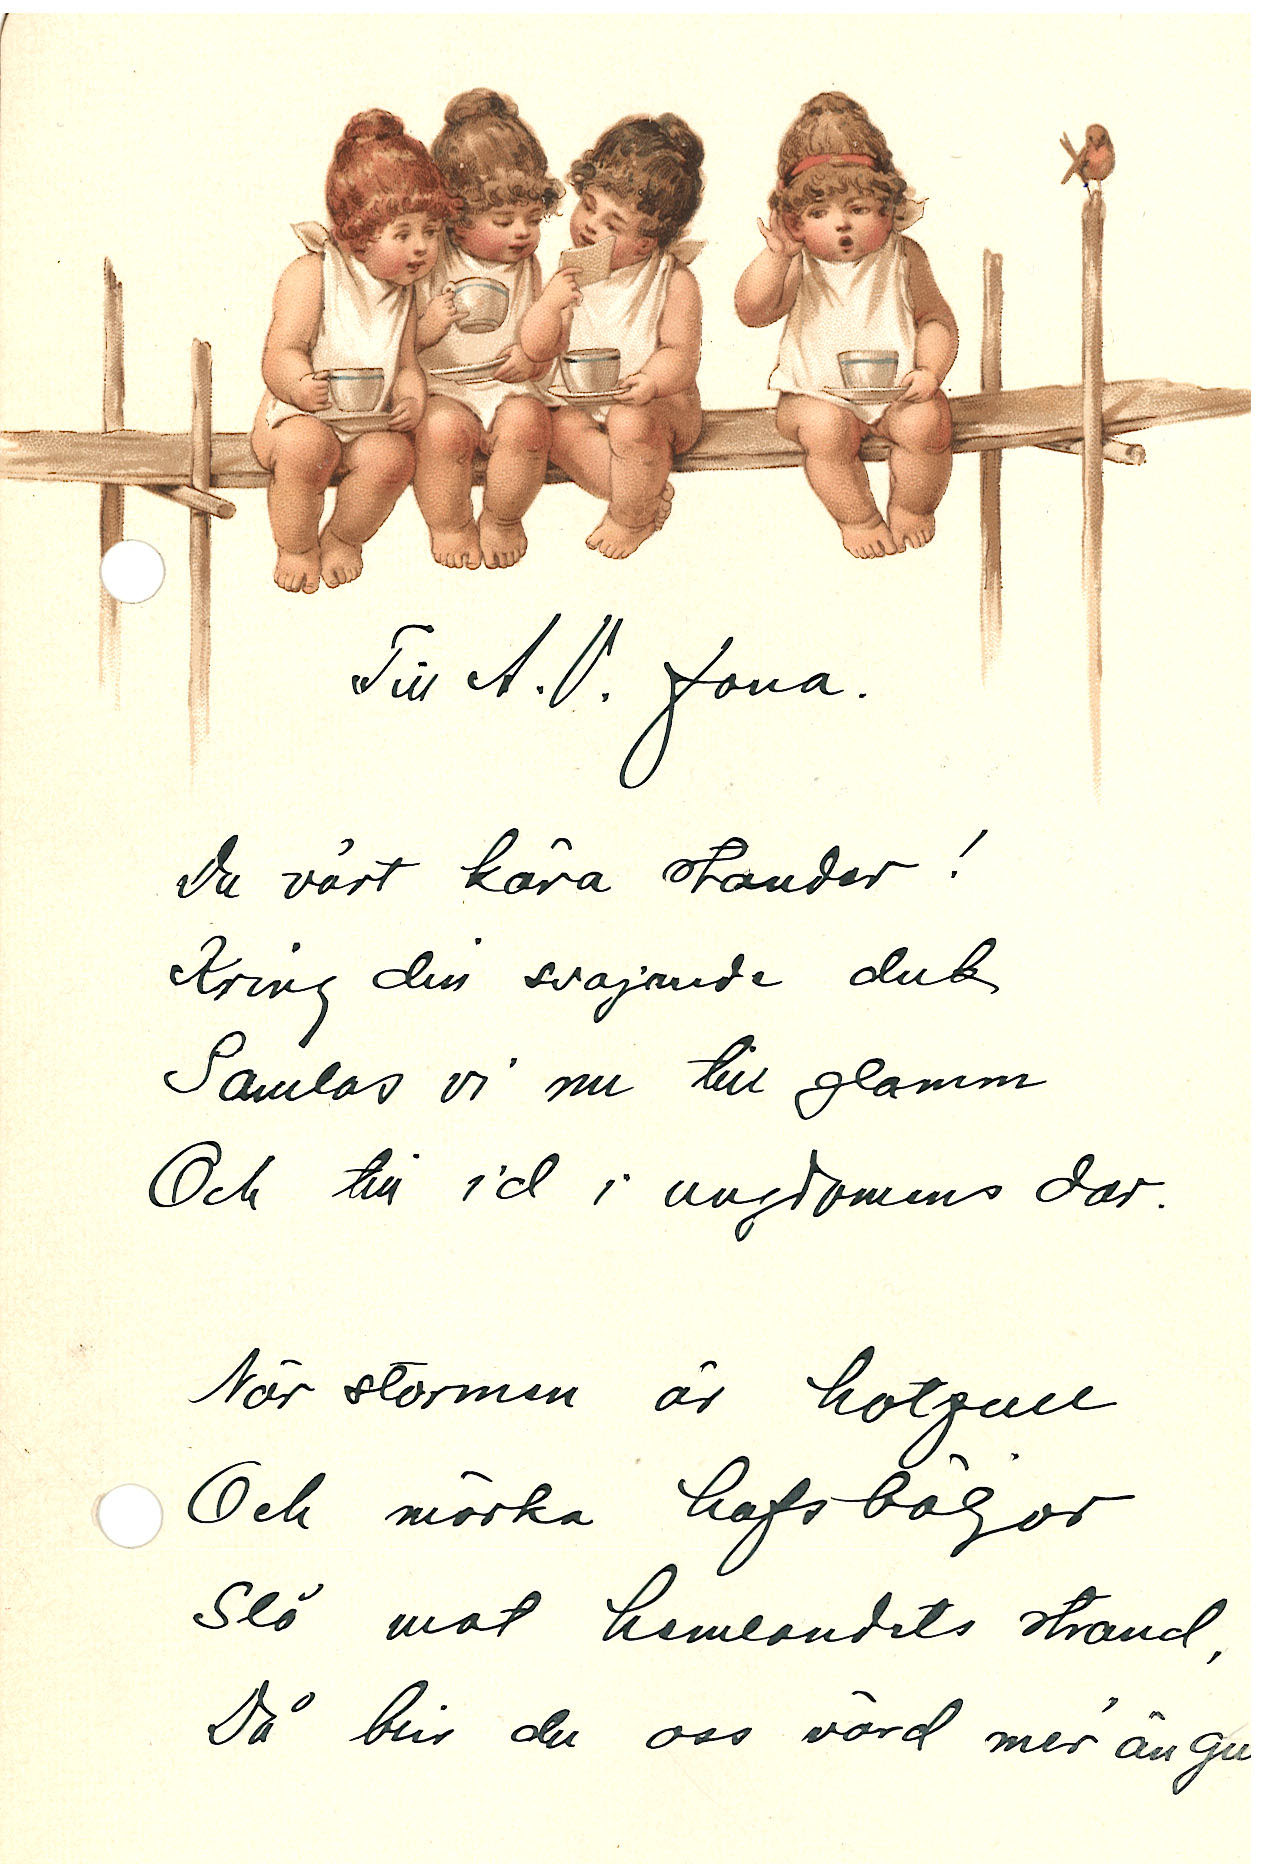 Till A.V. Jona.
Du vårt kära standar!
Kring din svajande duk
Samlas vi nu till glamm
Och till id i ungdomens dar.
När stormen är hotfull
Och mörka hafsböljor
Slå mot hemlandets strand,
Då blir du oss värd mer än gu